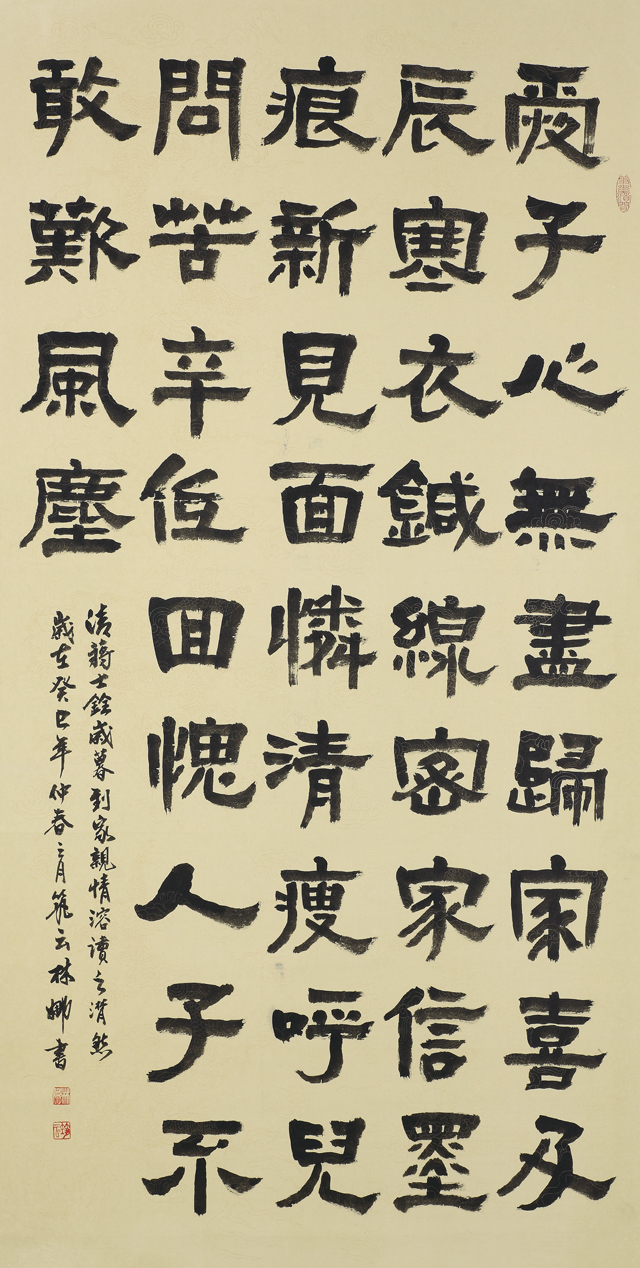 愛子心無盡歸家喜及
辰寒衣鍼線密家信墨
痕新見面憐清瘦呼兒
問苦辛低回愧人子不
敢歎風塵
清蔣士銓歲暮到家親情溶讀之潸然
歲在癸巳年仲春之月筑云林娜書